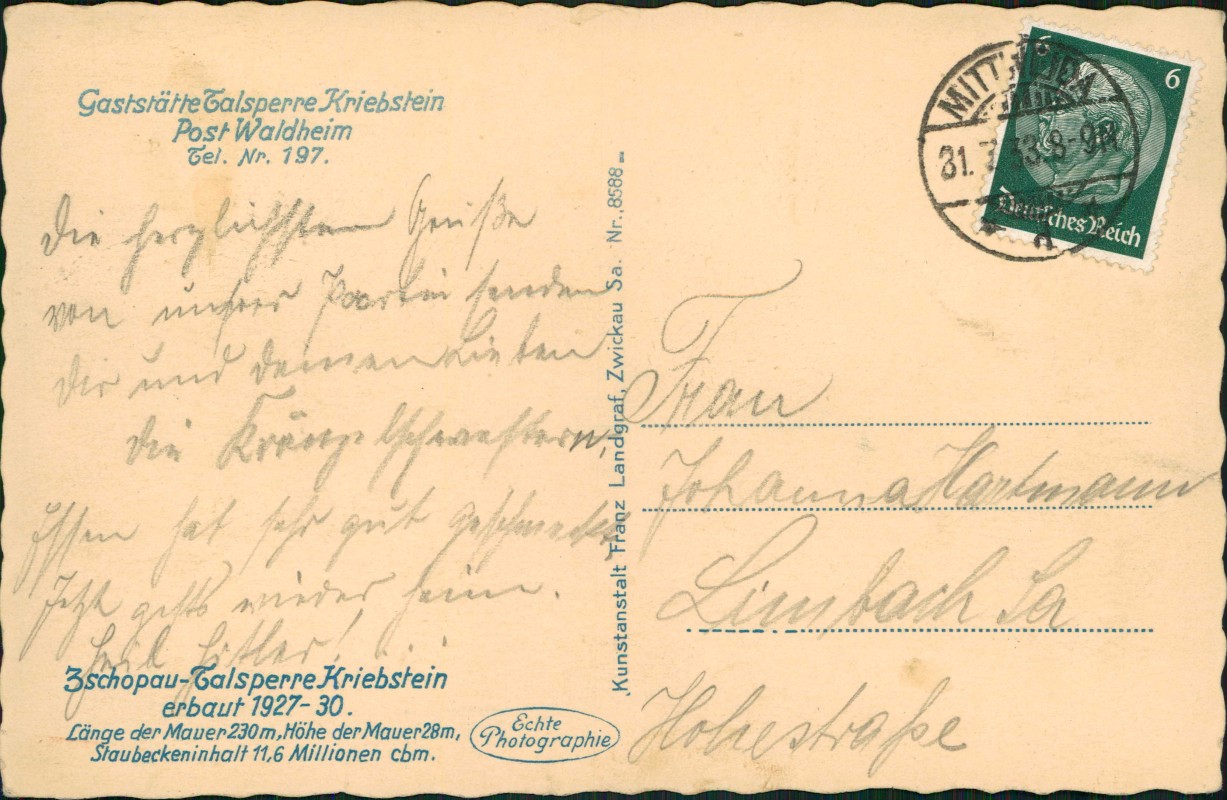 Gaststätte Talsperre Kriebstein
Post Waldheim
Tel. Nr. 197.
Die herzlichsten Grüße
von unsrer Partie senden
Dir und deinen Lieben
die Kränzelschwestern,
Essen hat sehr gut geschmeckt
Jetzt gehts wieder heim.
Heil Hitler!
Zschopau-Talsperre Kriebstein
erbaut 1927-30.
Länge der Mauer 230m, Höhe der Mauer 28m,
Staubeckeninhalt 11,6 Millionen cbm.
Echte
Photographie
Kunstanstalt Franz Landgraf, Zwickau Sa. Nr. 8588
31. 33. 8-9
6
Deutsches Reich
Frau
Johanna Hartmann
Limbach Sa
Hohestraße